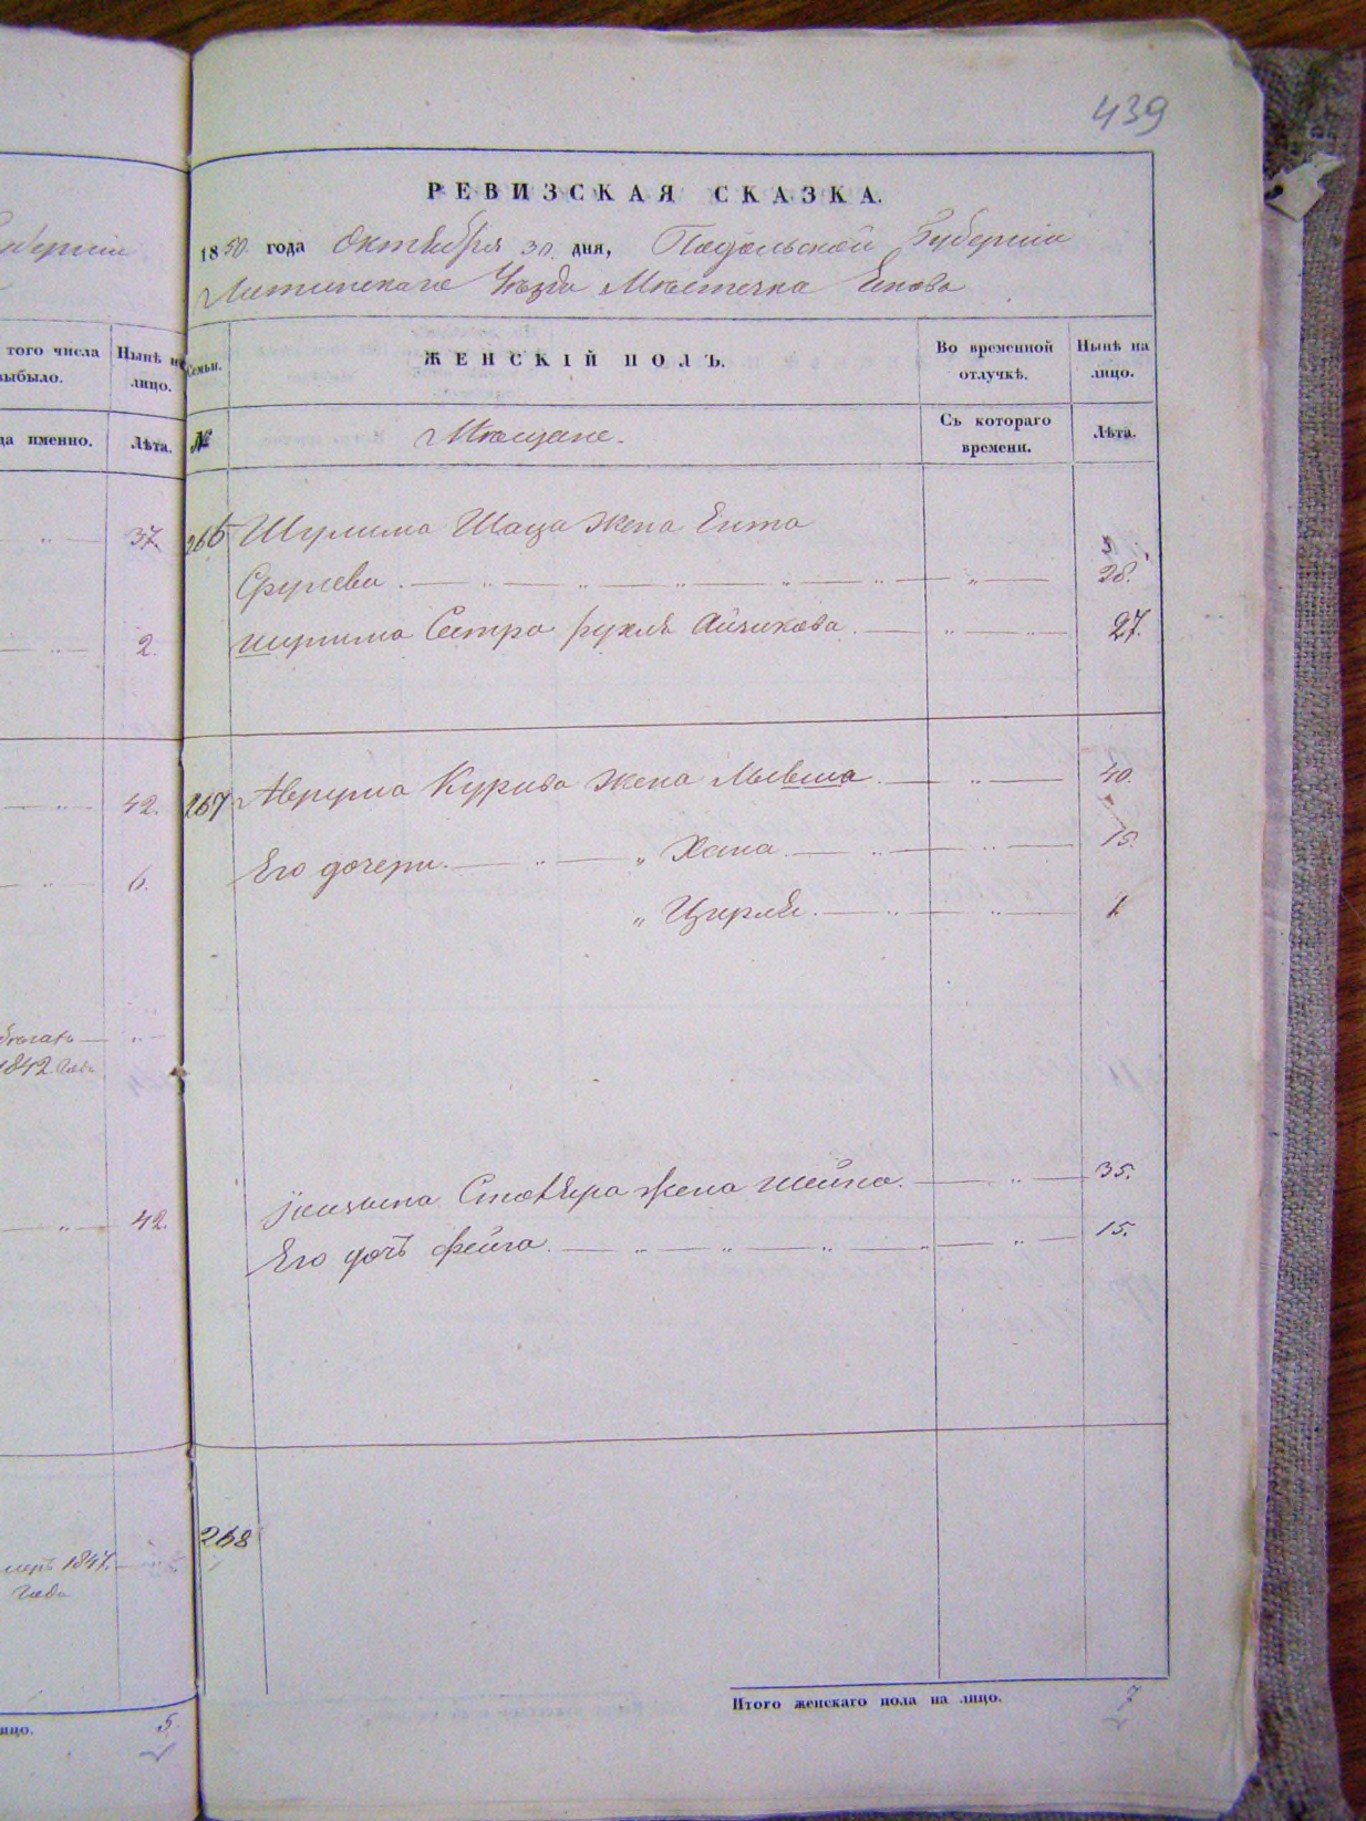 439
губерніи
РЕВИЗСКАЯ СКАЗКА.
1850. года Октября 30. дня, Подольской Губерніи
Литинскаго Уѣзда Мѣстечка
того числа выбыло. Нынѣ на лицо.
Семьи. ЖЕНСКІЙ ПОЛЪ. Во временной отлучкѣ. Нынѣ на лицо.
да именно. Лѣта.
№ Мѣщане. Съ котораго времени. Лѣта.
37. 266 Шулима Шаца жена Ента
Сруліова 28.
2. Шулима Сестра рухля Айзикова 27.
42. 267 Аврума жена 40.
6. Его дочери Хана 15.
" Цирля 1
1842. года
42. жена Шейна 35.
Его дочь фейга 15.
268
1847.
года
лицо. 5
Итого женскаго пола на лицо. 7